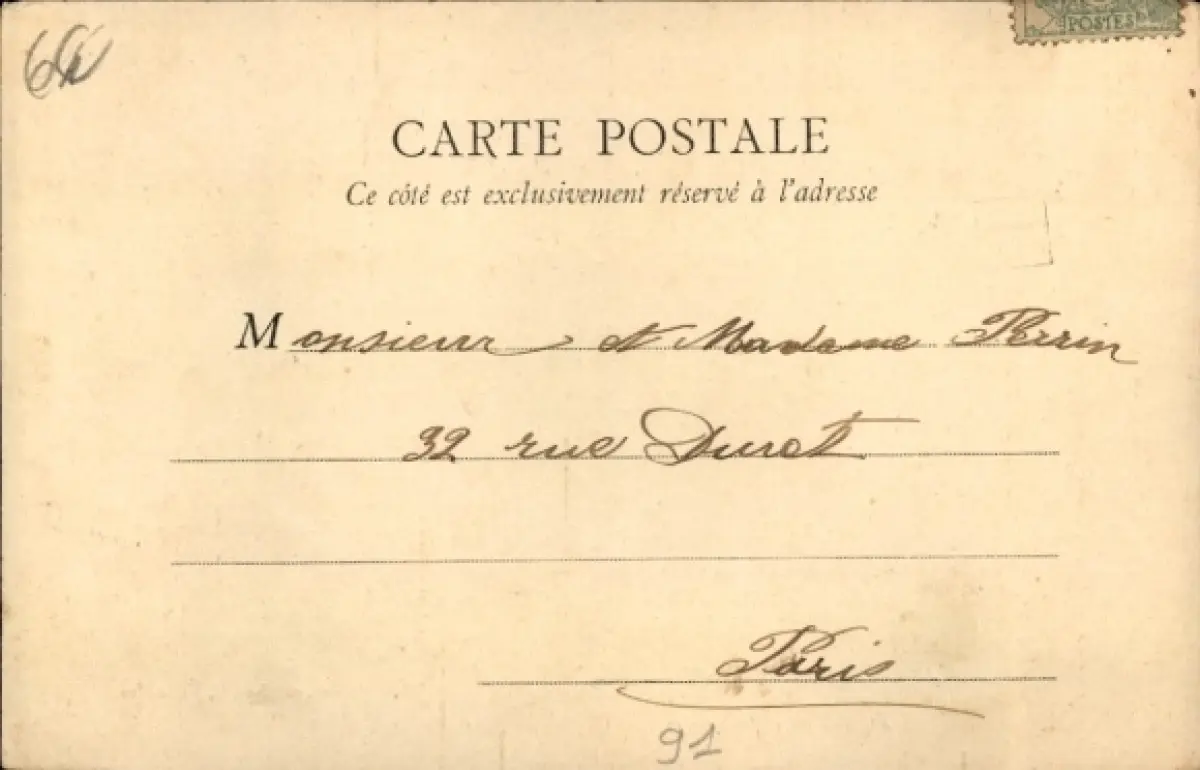 64
POSTES
CARTE POSTALE
Ce côté est exclusivement réservé à l'adresse
Monsieur et Madame Perrin
32 rue Duret
Paris
91